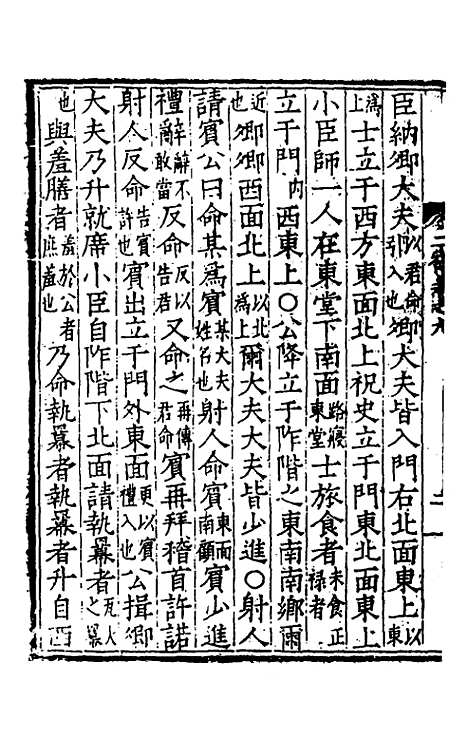 臣納卿大夫以君命引入也卿大夫皆入門右北面東上以東
爲上士立于西方東面北上祝史立于門東北面東上
小臣師一人在東堂下南面路寢東堂士旅食者未食正祿者
立于門內西東上〇公降立于阼階之東南南鄉爾
近也卿卿西面北上以北爲上爾大夫大夫皆少進〇射人
請賓公曰命某爲賓某大夫姓名也射人命賓東面南顧賓少進
禮辭辭不敢當反命反以告君又命之再傳君命賓再拜稽首許諾
射人反命告賓許也賓出立于門外東面更以賓禮入也公揖卿
大夫乃升就席小臣自阼階下北面請執冪者瓦大之冪
也與羞膳者羞於公者庶羞也乃命執冪者執冪者升自西